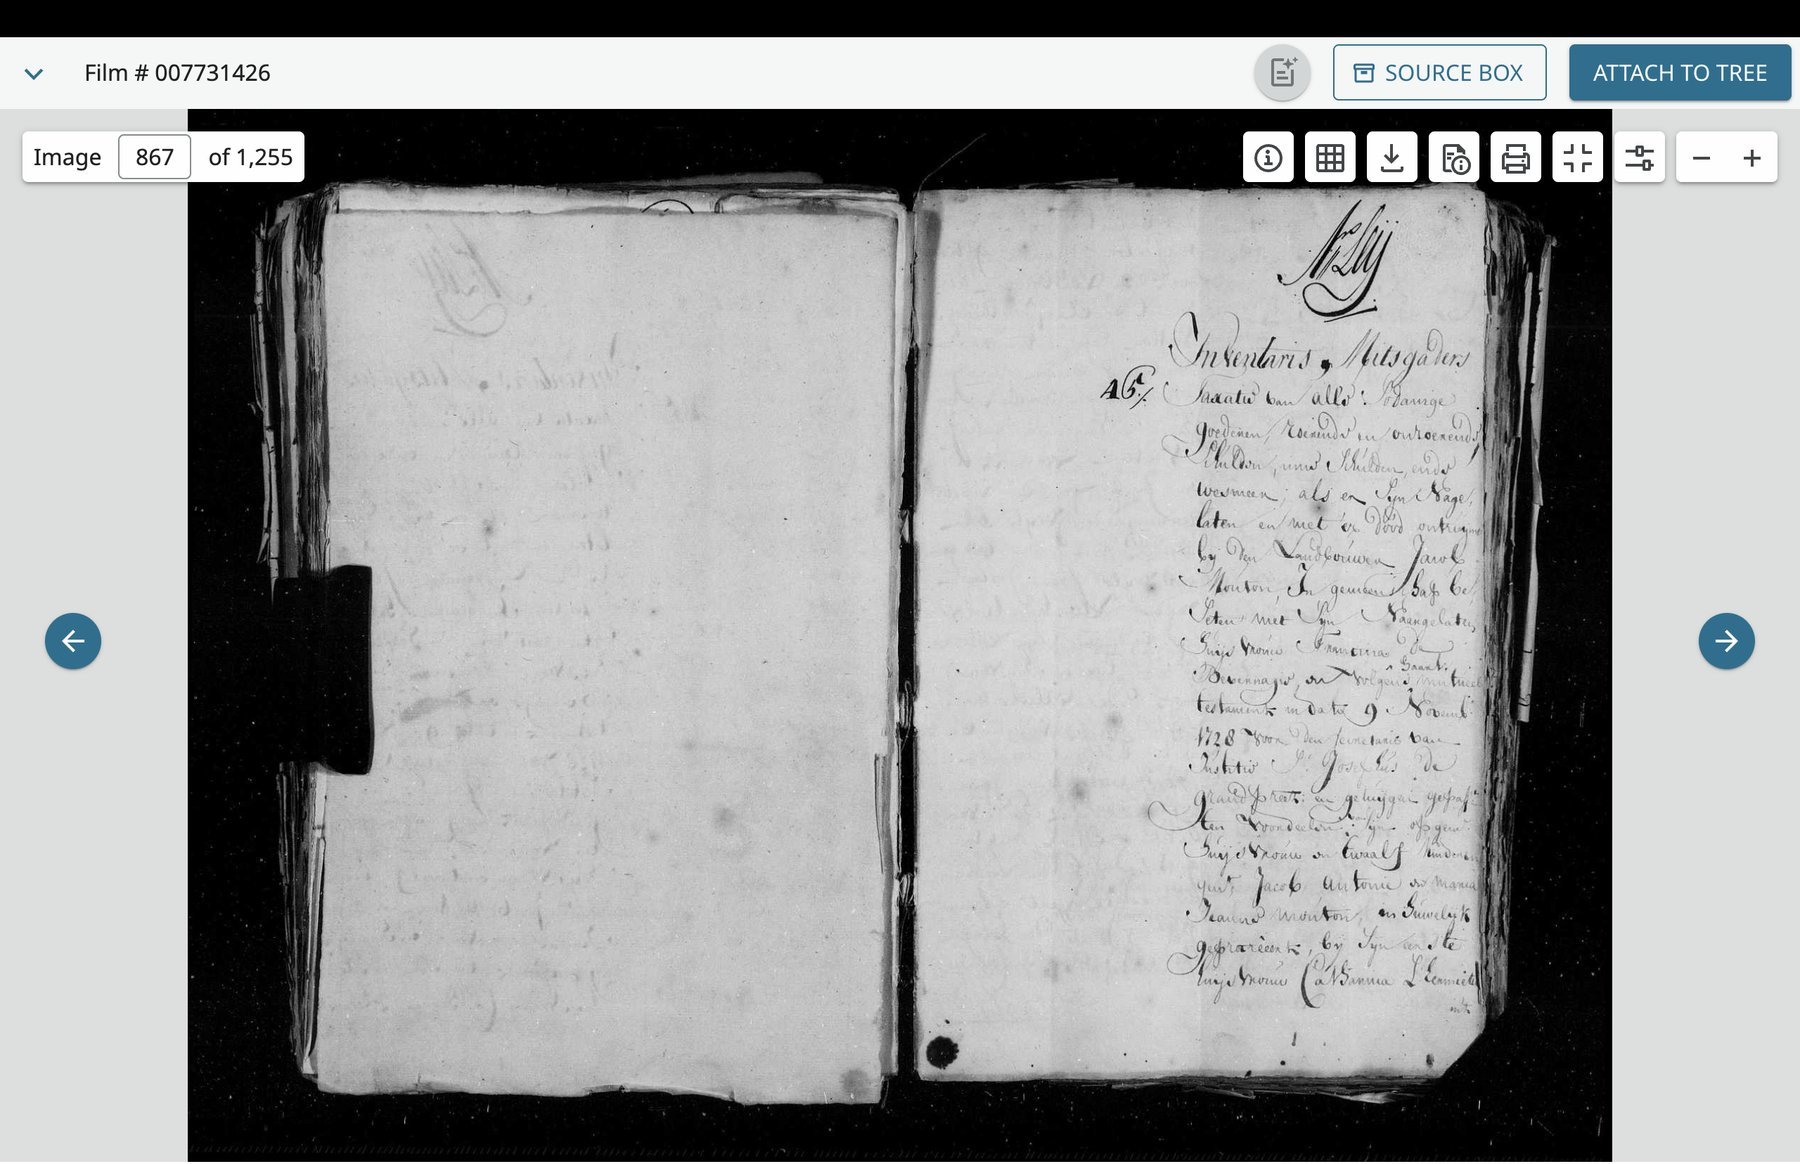 Film # 007731426
SOURCE BOX
ATTACH TO TREE
Image 867 of 1,255
Inventaris, Mitsgaders
45/ Taxatie van alle Sodanige
goederen, roerende en onroerende
Schulden, inne Schulden, ende
wesmeer, als er Syn Nage
laten en met er dood ontruymt
by den Landbouwer Jacob
Mouton, In gemeenschap be
Seten met Syn Naangelaten
huijsvrouw Francina de
Bevernagie, en volgens haar mutueel
testament in dato 9 Novemb:
1728 voor den Secretaris van
Justitie Sr Josephus de
grandpreez: en getuijgen gepass:
Ten voordeelen van Syn opgem:
huijsvrouw en twaalf kinderen
gent Jacob Antonie en Maria
mouton, in huwelijk
geprocreeert, by Syn eerste
huijsvrouw Catharina L'Hermiete
mts